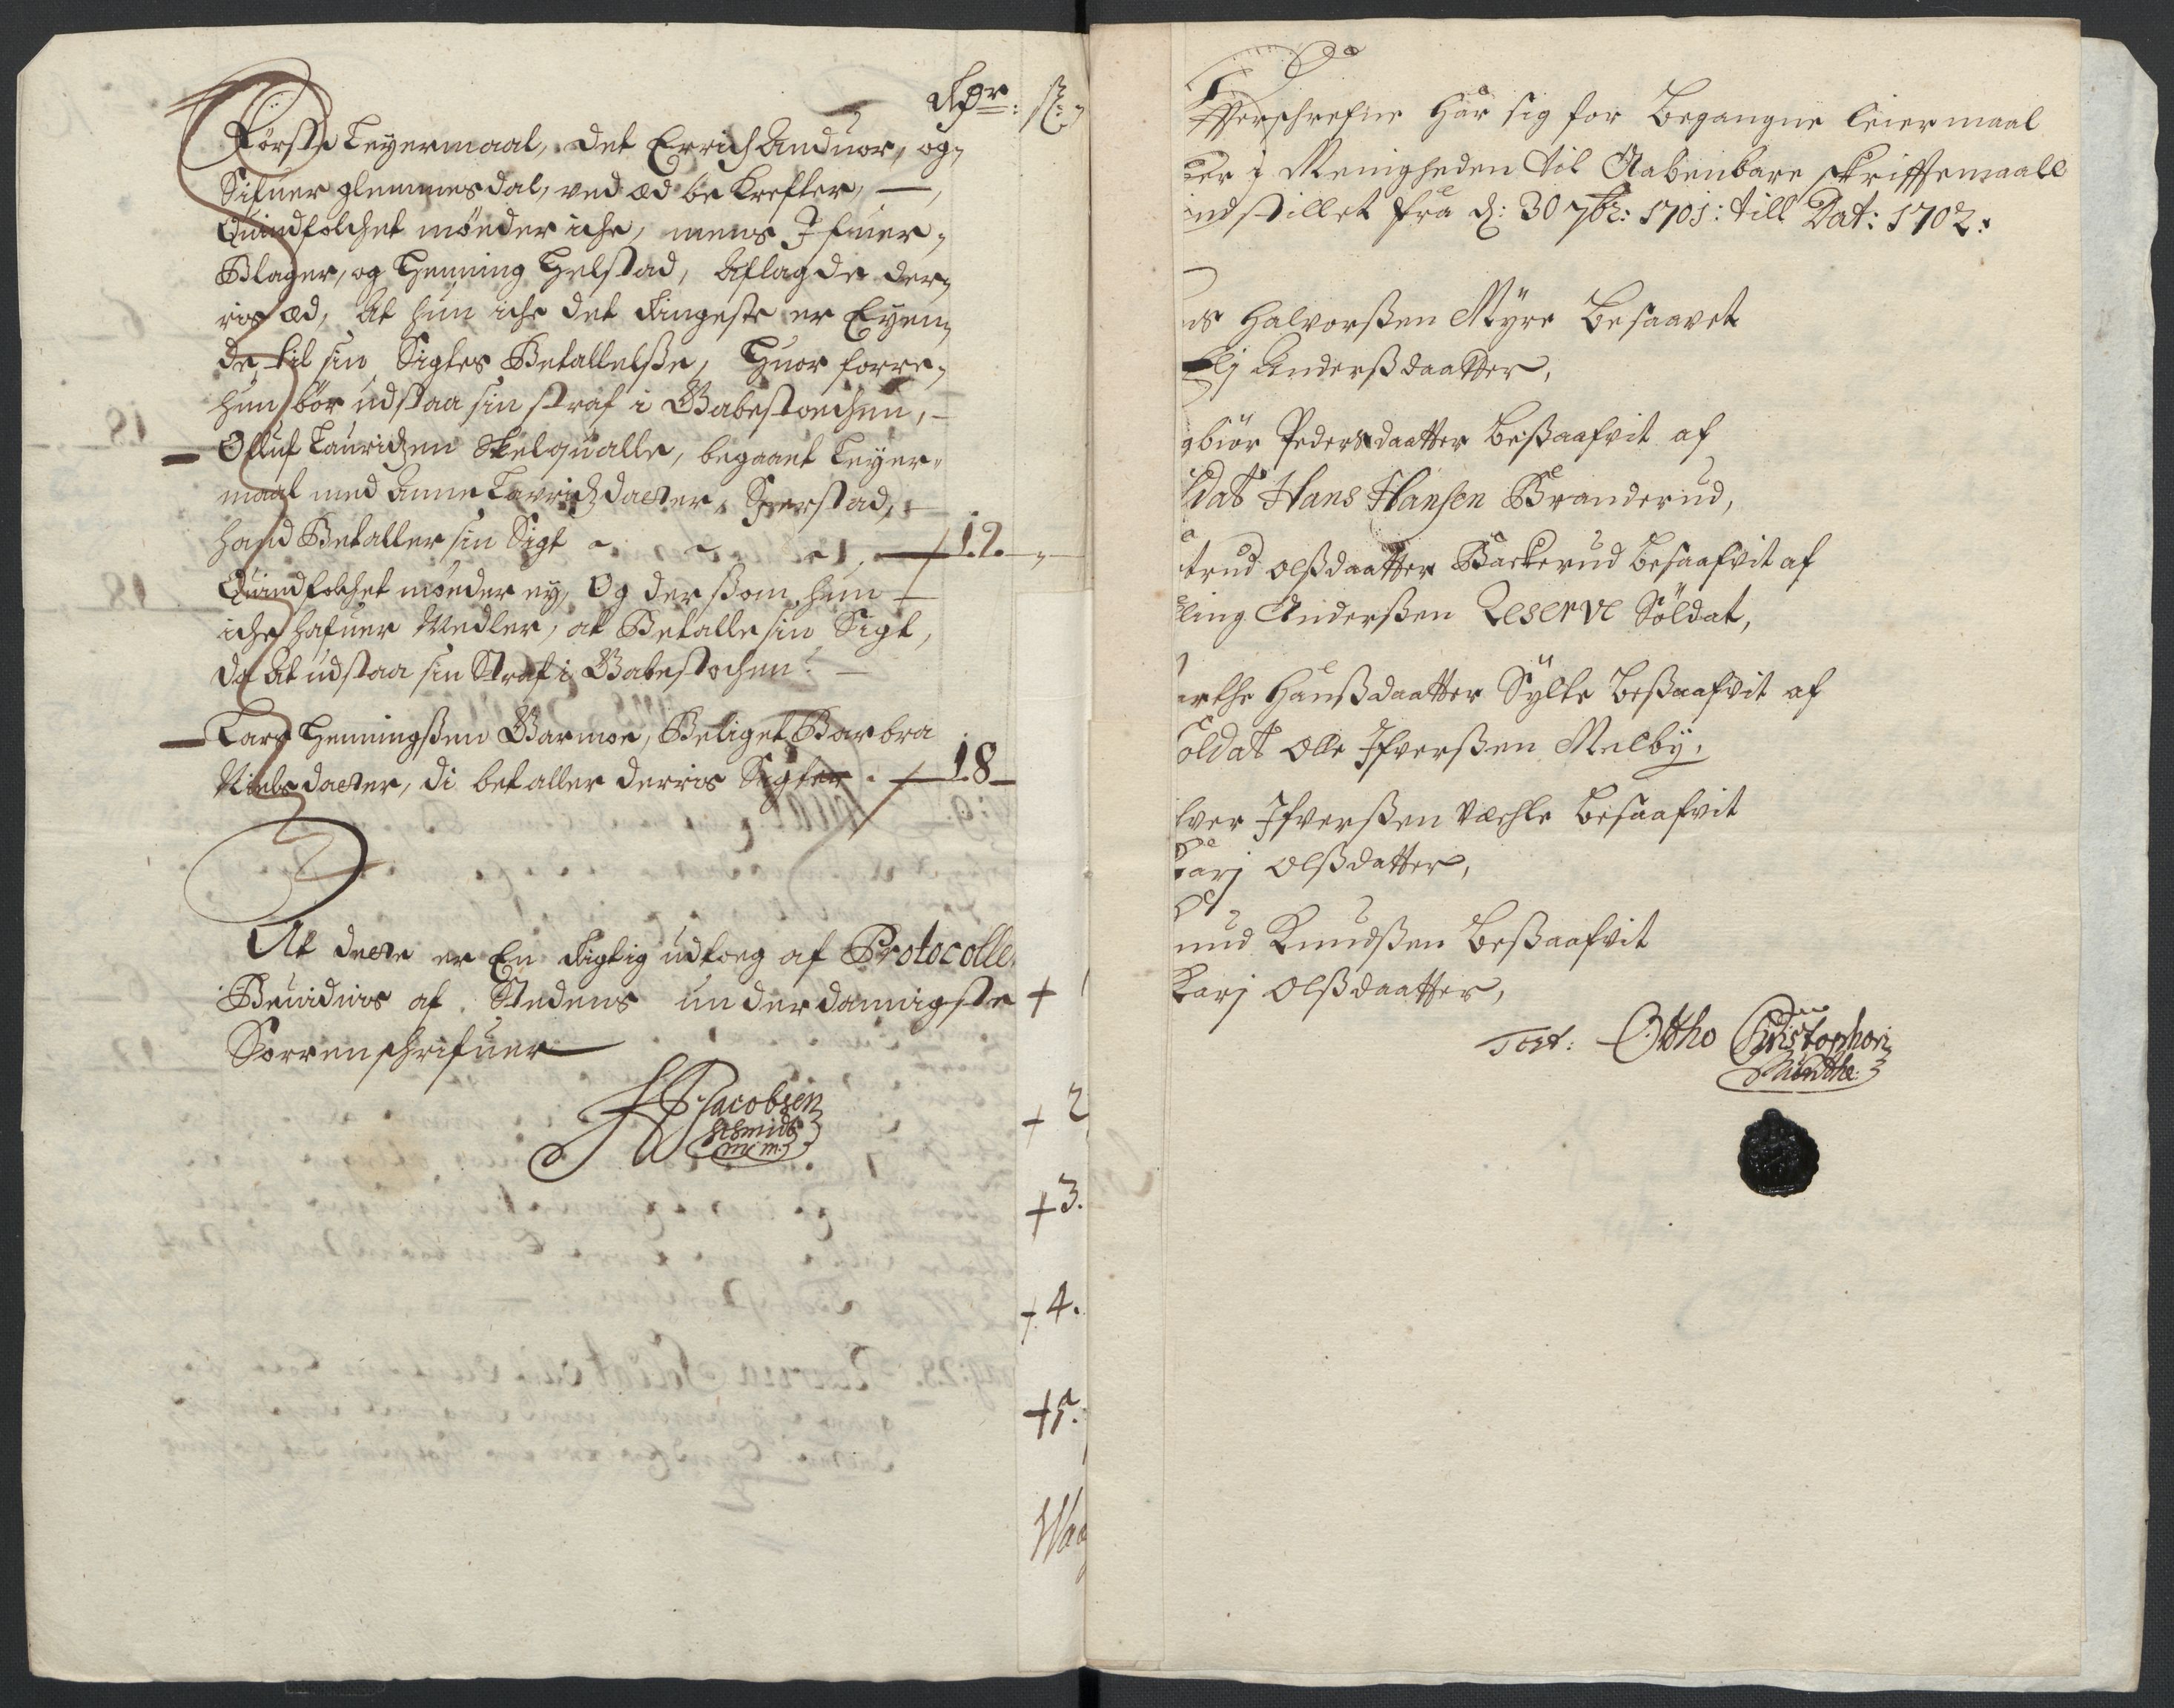 Rdr: ß:
Første Leyermaal, det Errich Anduor, og
Sifuer glemmesdal, ved æd bekrefter,
Quindfolchet møeder iche, mens Ifuer
Blager, og Henning Helstad, Aflagde der
ris æd, At hun iche det Ringeste er Eyen
de til sin Sigtes Betallelsse, Huor forre
hun bør udstaa sin straf i Gabestochen,
Olluf Lauridzen Skelqualle, begaaet Leyer
maal med Anne Lavridzdatter, Sperstad,
hand Betaller sin Sigt 12
Quindfolchet møeder ey, Og derssom hun
iche hafuer Medler, at Betalle sin Sigt,
da At udstaa sin Straf i Gabestochen
Lars Henningssen Garmoe, Beliget Barbra
Nielsdatter, di betaller derris Sigter 18
At dette er En Rigtig udtoeg af Protocolle
Beuidnis af Stedens underdannigste +
Sorrenschrifuer
Jacobsen
Schmidt
m m
+ 2
+ 3.
+ 4.
+ 5.
fterschrefne Har sig for Begangne leiermaal
er j Menigheden til Aabenbare skrifftemaall
indstillet fra d: 30 7br: 1701: till Dat: 1702:
Halvorssen Myre Besaavet
Anderssdaatter,
gbiør Pedersdaatter Bessaafvit af
ldat Hans Hansen Branderud,
trud Olssdaatter Backerud Besaafvit af
ling Anderssen Reserve Soldat,
rthe Hanssdaatter Sylte Bessaafvit af
oldat Olle Ifverssen Melby,
lver Ifverssen Væchle Besaafvit
Karj Olssdatter,
nud Knudssen Bessaafvit
Karj Olssdaatter,
Test: Ottho Christophori
Munthe: